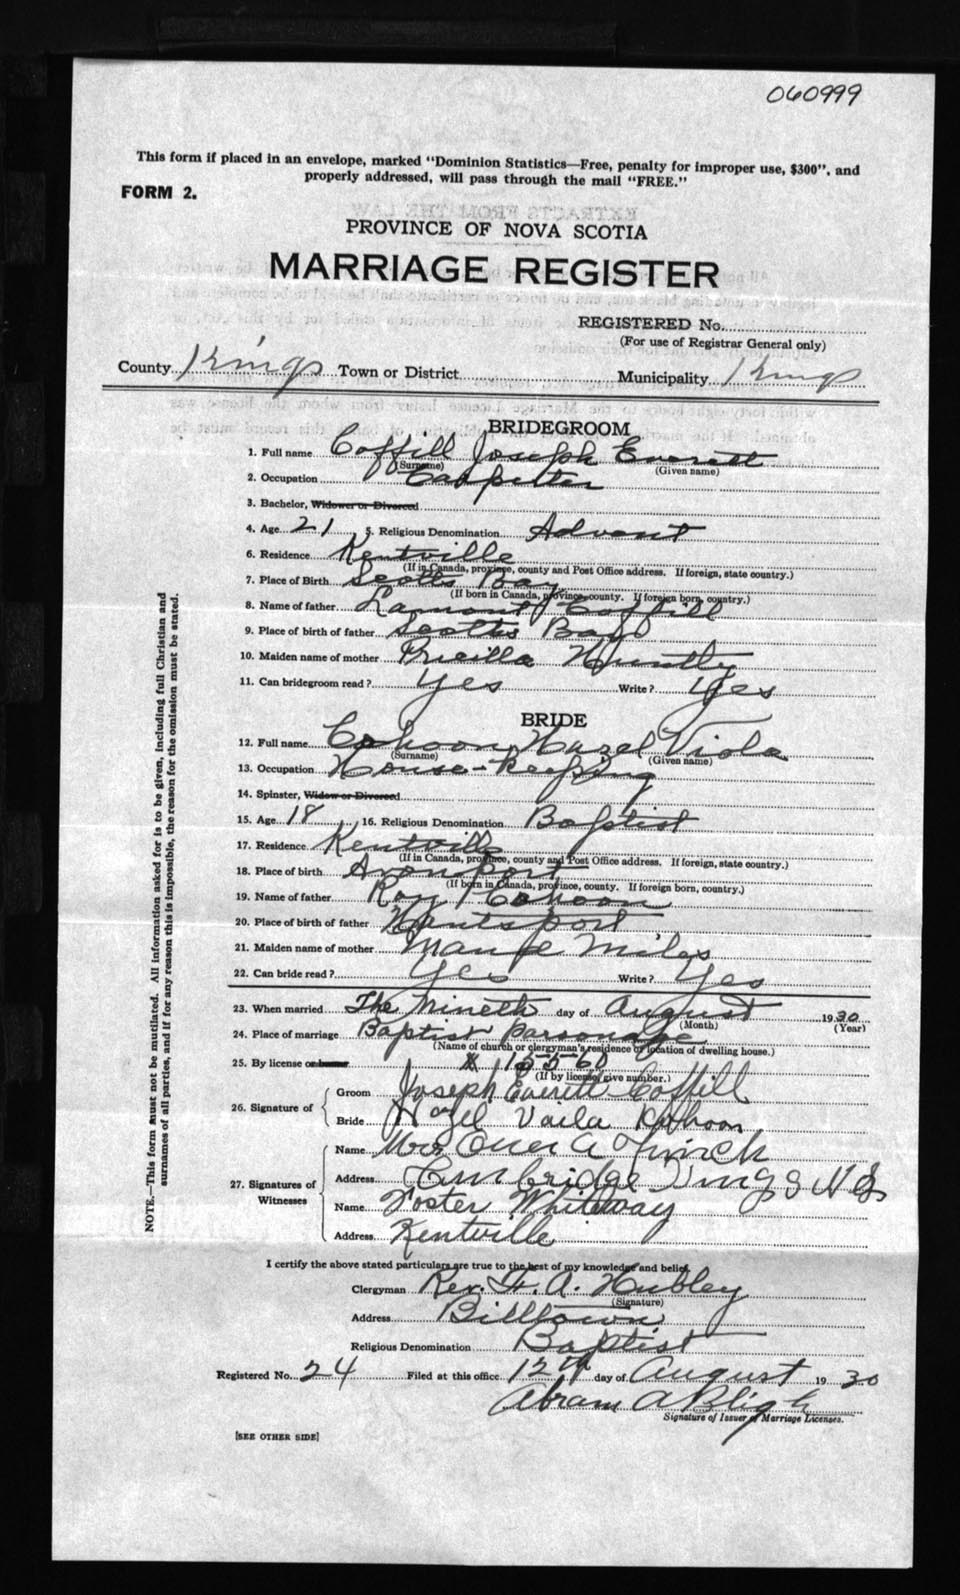 060999
This form if placed in an envelope, marked "Dominion Statistics—Free, penalty for improper use, $300", and
properly addressed, will pass through the mail "FREE."
FORM 2.
PROVINCE OF NOVA SCOTIA
MARRIAGE REGISTER
REGISTERED No.
(For use of Registrar General only)
County Kings Town or District Municipality Kings
BRIDEGROOM
1. Full name Coffill Joseph Everett
(Surname) (Given name)
2. Occupation Carpetter
3. Bachelor, Widower or Divorced
4. Age 21 5. Religious Denomination Advent
6. Residence Kentville
(If in Canada, province, county and Post Office address. If foreign, state country.)
7. Place of Birth Scotts Bay
(If born in Canada, province, county. If foreign born, country.)
8. Name of father Lamont Coffill
9. Place of birth of father Scotts Bay
10. Maiden name of mother Pricilla Huntly
11. Can bridegroom read? Yes Write? Yes
BRIDE
12. Full name Cohoon Hazel Viola
(Surname) (Given name)
13. Occupation House-keeping
14. Spinster, Widow or Divorced
15. Age 18 16. Religious Denomination Baptist
17. Residence Kentville
(If in Canada, province, county and Post Office address. If foreign, state country.)
18. Place of birth Avonport
(If born in Canada, province, county. If foreign born, country.)
19. Name of father Roy Cohoon
20. Place of birth of father Hantsport
21. Maiden name of mother Maude Miles
22. Can bride read? Yes Write? Yes
23. When married The Nineth day of August 1930
(Month) (Year)
24. Place of marriage Baptist Parsonage
(Name of church or clergyman's residence or location of dwelling house.)
25. By license or banns
(If by license, give number.)
26. Signature of Groom Joseph Everett Coffill
Bride Hazel Kohoon
27. Signatures of Witnesses Name Mrs A
Address Cambridge Kings N S
Name Foster Whiteway
Address Kentville
I certify the above stated particulars are true to the best of my knowledge and belief.
Clergyman Rev. F. A. Hubley
(Signature)
Address Billtown
Religious Denomination Baptist
Registered No. 24 Filed at this office 12th day of August 1930
Abram A Bligh
Signature of Issuer of Marriage Licenses.
[SEE OTHER SIDE]
NOTE.—This form must not be mutilated. All information asked for is to be given, including full Christian and
surnames of all parties, and if for any reason this is impossible, the reason for the omission must be stated.